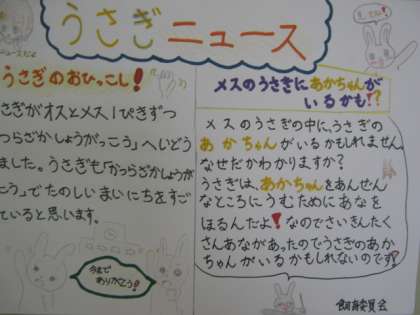 うさぎニュース
うさぎのおひっこし!
さぎがオスとメス1ぴきずつ
つらざかしょうがっこう」へいどう
ました。うさぎも「かつらざかしょうが
こう」でたのしいまいにちをすご
ていると思います。
今まで
ありがとう!
メスのうさぎにあかちゃんが
いるかも!?
メスのうさぎの中に、うさぎの
あかちゃんがいるかもしれません。
なぜだかわかりますか?
うさぎは、あかちゃんをあんぜん
なところにうむためにあなを
ほるんだよ!なのでさいきんたく
さんあながあったのでうさぎのあか
ちゃんがいるかもしれないのです!
飼育委員会